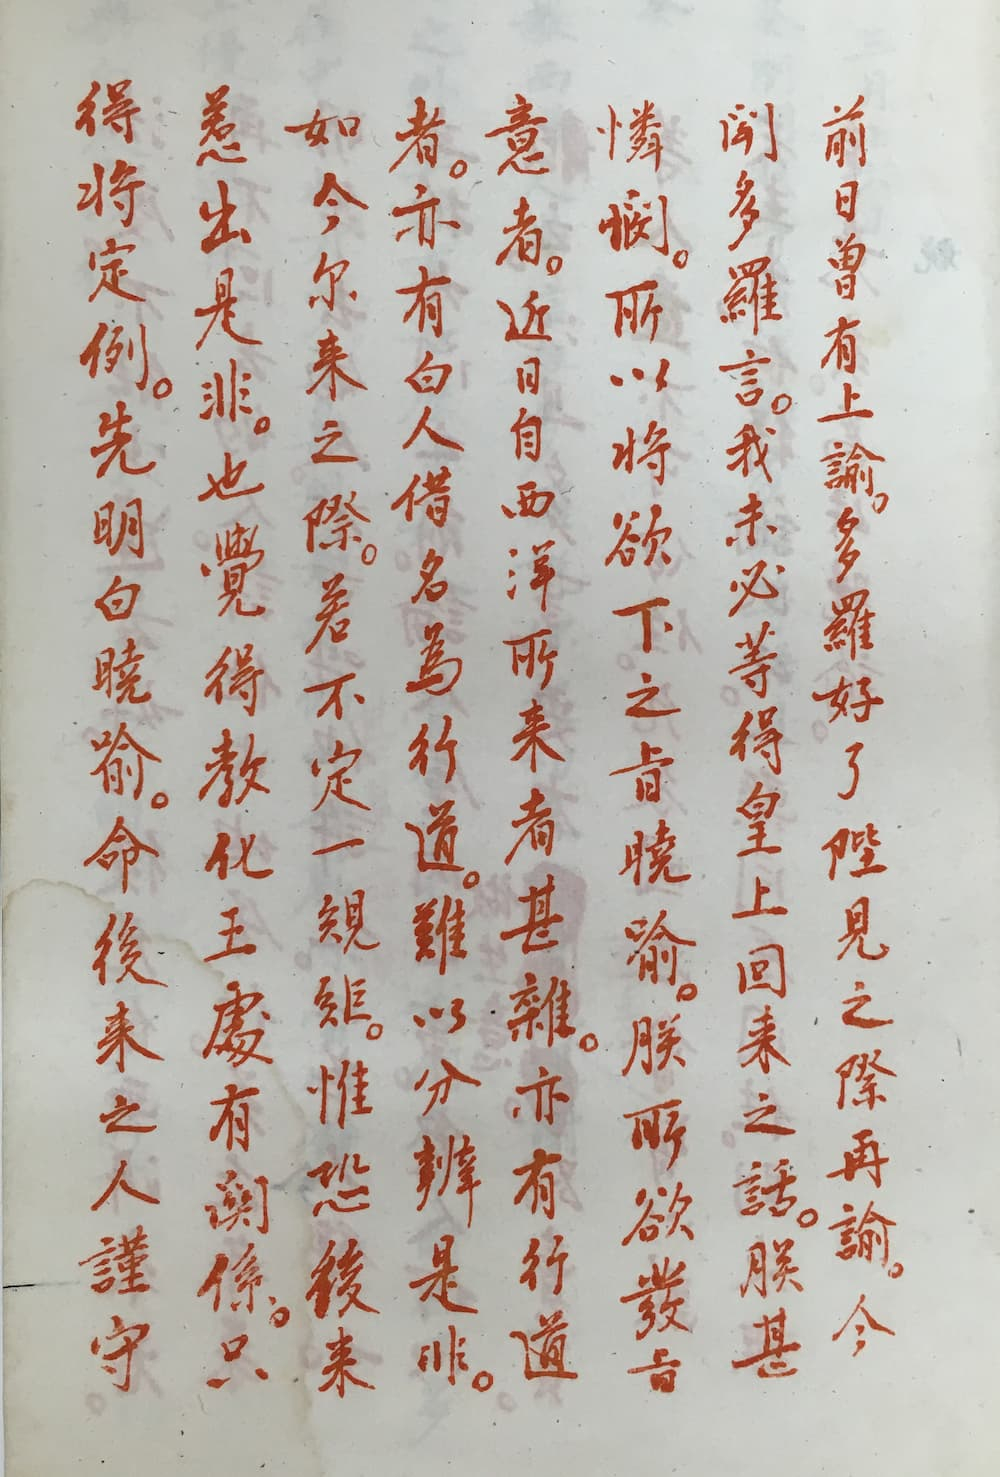 前日曾有上諭。多羅好了陛見之際再諭。今
聞多羅言。我未必等得皇上回來之話。朕甚
憐憫。所以將欲下之旨曉喻。朕所欲發旨
意者。近日自西洋所来者甚雜。亦有行道
者。亦有白人借名為行道。難以分辨是非。
如今尔来之際。若不定一規矩。惟恐後来
惹出是非。也覺得教化王處有関係。只
得将定例。先明白曉喻。命後来之人謹守